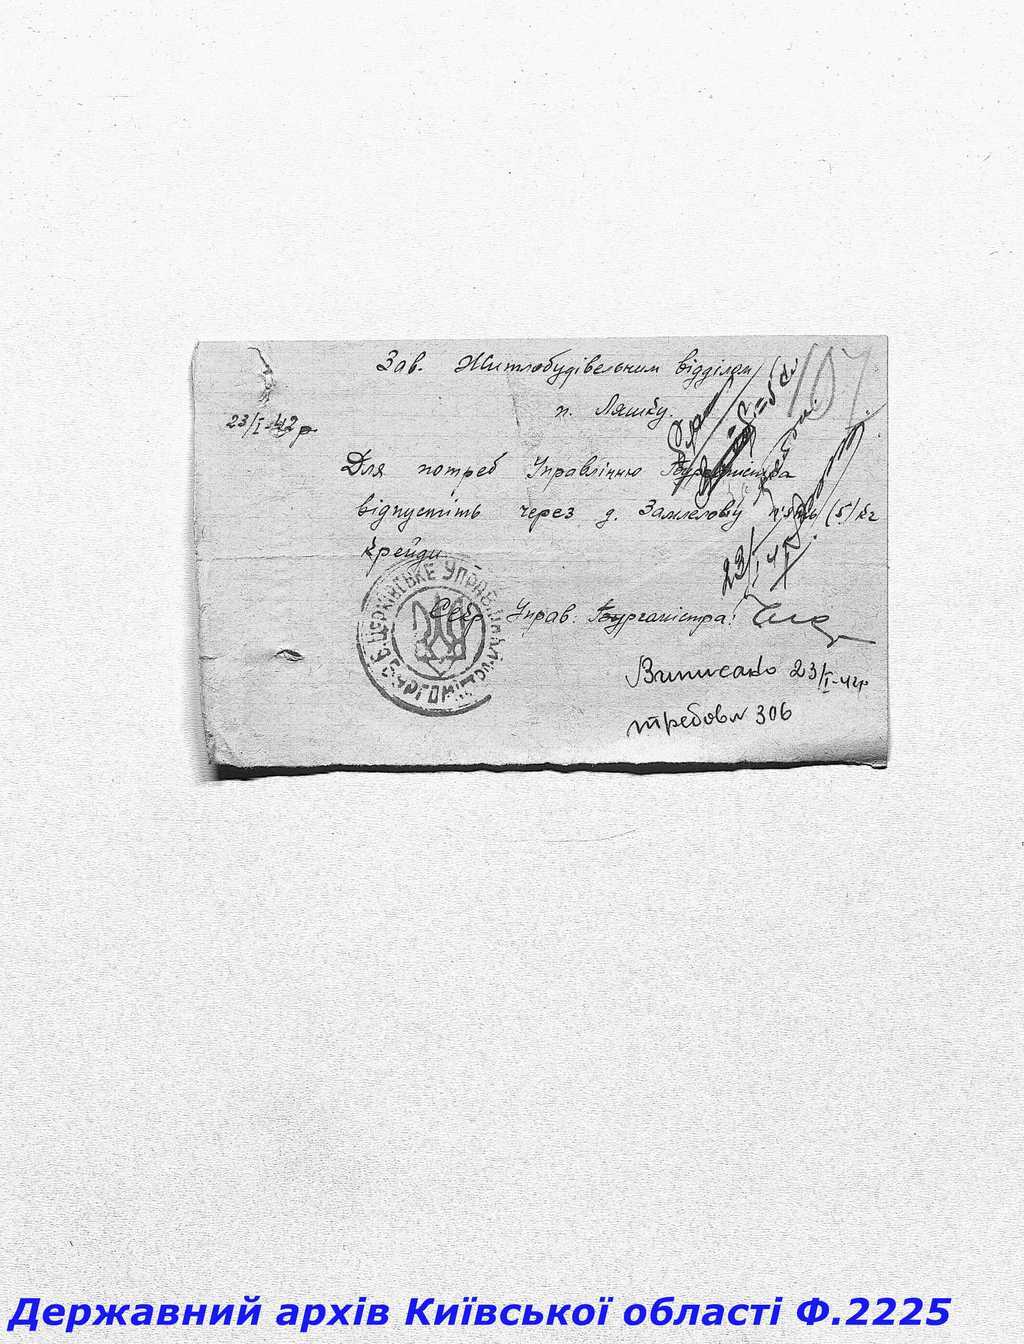 Зав. Житлобудівельним відділом
п. Ляшку.
107
23/I-42 р
Для потреб Управлінню Бургомістра
відпустіть через д. п'ять (5) кг
крейди
Секр. Управ. Бургомістра:
Б. ЦЕРКІВСЬКЕ УПРАВЛІННЯ БУРГОМІСТРА
23/I
Виписано 23/I-42р
требов № 306
Державний архів Київської області Ф.2225